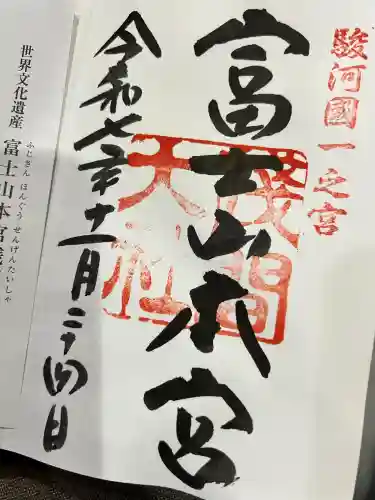 駿河國一之宮
富士山本宮
淺間大社
令和七年十一月二十四日
世界文化遺産
富士山本宮浅
ふじさん ほんぐう せんげんたいしゃ